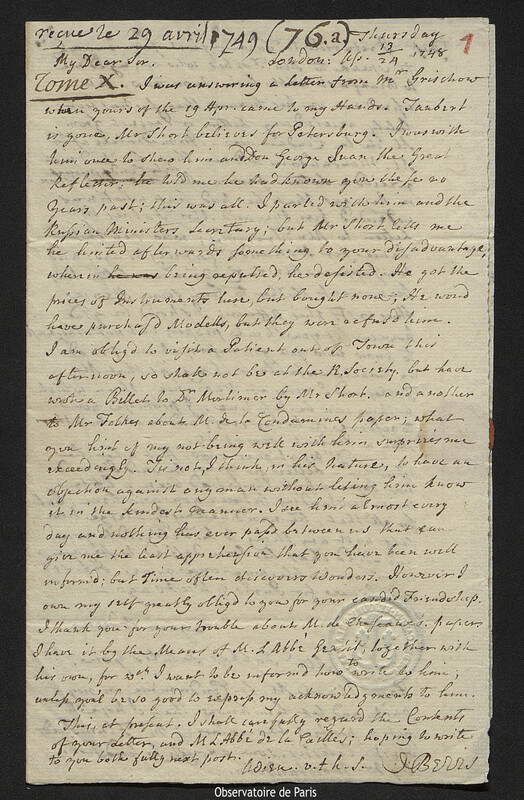 reçue le 29 avril 1749 (76.a) Thursday
My Dear Sir. London: Ap. 13/24 1748 1
Tome X. I was answering a letter from Mr Grischow
when yours of the 19 Apr. came to my Hands. Taubert
is gone, Mr Short believes for Petersburg. I was with
him once to shew him and Don George Juan the Great
Reflecter: he told me he had known you these 20
Years past; this was all. I parted with him and the
Russian Ministers Secretary; but Mr Short tells me
he hinted afterwards something to your disadvantage,
wherein he was being repulsed, he desisted. He got the
prices of Instruments here, but bought none; He wou'd
have purchas'd Modells, but they were refus'd him.
I am oblig'd to visit a Patient out of Town this
afternoon, so shall not be at the R. Society. but have
wrote a Billet to Dr Mortimer by Mr Short. and another
to Mr Folkes about M. de la Condamines paper; what
you hint of my not being well with him surprizes me
exceedingly. Tis not, I think, in his Nature, to have an
objection against any man without leting him know
it in the kindest manner. I see him almost every
day and nothing has ever pass'd between us that can
give me the least apprehension that you have been well
inform'd; but Time often discovers Wonders. However I
own my self greatly oblig'd to you for your candid Friendship.
I thank you for your trouble about M. de paper.
I have it by the Means of M. L'Abbé together with
his own, for wch. I want to be inform'd how to write to him;
unless you'l be so good to express my acknowledgments to him.
This, at present. I shall carefully regard the Contents
of your Letter, and M L'Abbé de la Caille's; hoping to write
to you both fully next post.
Adieu. v.t.h.s. J Bevis
Observatoire de Paris